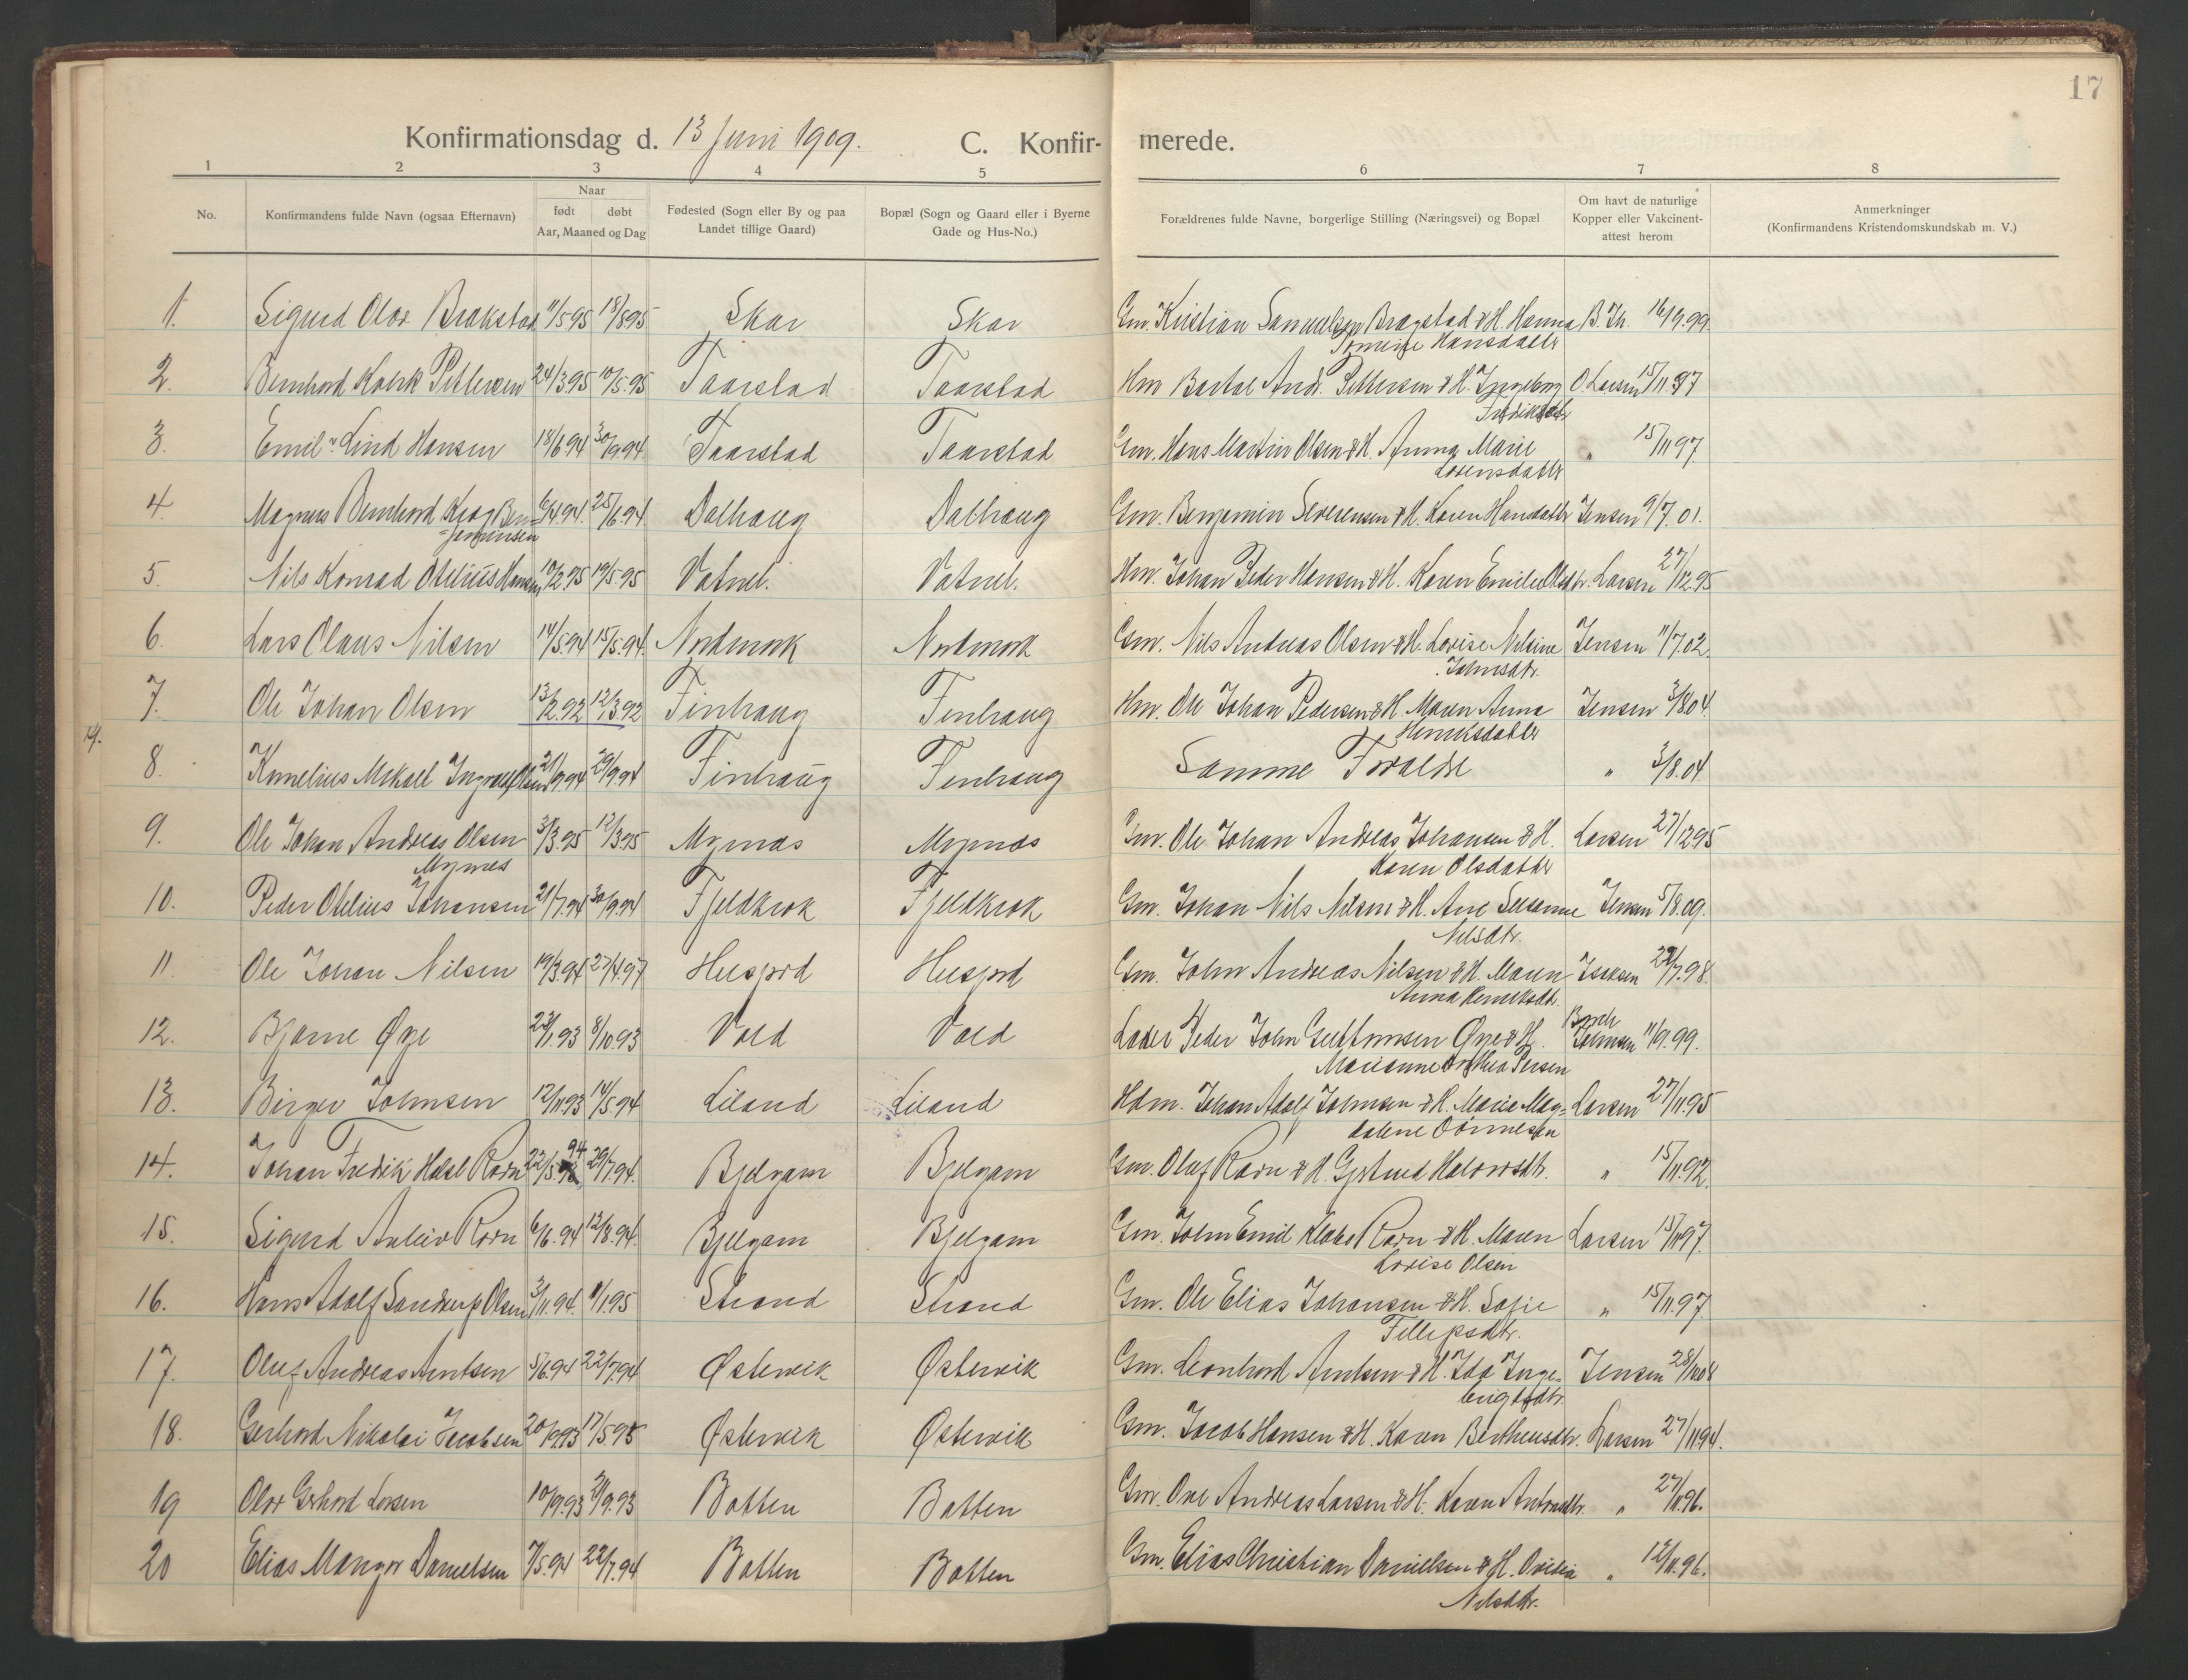 17
Konfirmationsdag d. 13 Juni 1909. C. Konfir- merede.
1 2 3 4 5 6 7 8
No. Konfirmandens fulde Navn (ogsaa Efternavn) Naar født døbt Aar, Maaned og Dag Fødested (Sogn eller By og paa Landet tillige Gaard) Bopæl (Sogn og Gaard eller i Byerne Gade og Hus-No.) Forældrenes fulde Navne, borgerlige Stilling (Næringsvei) og Bopæl Om havt de naturlige Kopper eller Vakcinent- attest herom Anmerkninger (Konfirmandens Kristendomskundskab m. V.)
1. Sigurd Olav Brokstad 11/5 95 18/8 95 Skar Skar Gm. Kristian Samuelsen Bragstad & H. Hanna B. Th. 16/9.99.
Hansdattr
2. Bernhard Pettersen 24/3 95 10/5.95 Taarstad Taarstad Hm Bartol Andr. Pettersen & H. Ingeborg O. Larsen 15/11 97
Fredriksdtr
3. Emil Lind Hansen 18/6 94 30/9.94. Taarstad Taarstad Gm. Hans Martin Olsen & H. Anna Marie " 15/11 97.
Lorensdattr
4. Magnus Bernhard Krag Ben= 6/4.94. 25/6.94. Dalhaug Dalhaug Gm. Benjamin Severensen & H. Karen Hansdattr Jensen 9/7.01.
=jaminsen
5. Nils Konrad Otelius Hansen 17/2.95 19/5.95 Vatnet. Vatnet. Hm. Johan Peder Hansen & H. Karen Emilie Olsdtr. Larsen 27/12.95
6. Lars Olaus Nilsen 14/5.94 15/5.94. Nordmark Nordmark Gm. Nils Andreas Olsen & H. Lovise Nilsine Jensen 11/7.02.
Johnsdtr.
7. Ole Johan Olsen 13/2.92 12/3.92 Finhaug Finhaug Hm. Ole Johan Pedersen & H. Maren Anna Jensen 3/8 04.
Henriksdattr
19.
8. Kornelius Mikael Ingvald Olsen 21/9.94 29/9.94 Finhaug Finhaug Samme Forældre " 3/8.04.
9. Ole Johan Andreas Olsen 3/3.95 12/3.95 Mynæs Mynæs Gm. Ole Johan Andreas Johansen & H. Larsen 27/12 95
Mynæs Karen Olsdattr
10. Peder Otelius Johansen 21/7.94 30/9.94 Fjeldkrok Fjeldkrok Gm. Johan Nils Nilsen & H. Ane Susanne Jensen 5/8.09.
Nilsdtr.
11. Ole Johan Nilsen 19/3.94 27/4.97 Husjord Husjord Gm. John Andreas Nilsen & H. Maren Isaksen 29/7.98.
Anna Henriksdtr.
12. Bjarne Øye 23/1.93 8/10.93 Vold Vold Peder John Guttormsen Øye & H. Johnsen 11/9.99.
Marianne Persen
13. Birger Johnsen 12/11 93 14/5.94 Liland Liland Hdm. Johan Adolf Johnsen & H. Marie Mag= Larsen 27/11.95
dalena
14. Johan Fredrik Ravn 22/5. 94 29/7.94. Bjelgam Bjelgam Gm. Oluf Ravn & H. Gjertrud Halvorsdtr. " 15/11.92.
15. Sigurd Ravn 6/6.94 12/8.94. Bjelgam Bjelgam Gm. John Emil Ravn & H. Maren Larsen 15/11 97.
Lovise Olsen
16. Hans Adolf Sandrup Olsen 3/11.94. 1/1.95 Strand Strand Gm. Ole Elias Johansen & H. Sofie " 15/11.97.
Fillipsdtr.
17. Oluf Andreas Arntsen 5/6.94 22/7.94 Østervik Østervik Gm. Leonhard Arntsen & H. Ida Inge= Jensen
18. Gerhard Nikolai Jacobsen 20/9.93 17/5.95 Østervik Østervik Gm. Jacob Hansen & H. Karen Bertheusdtr. Larsen 27/11 94.
19 Olav Gerhard Larsen 10/9.93 Botten Botten Gm. Ove Andreas Larsen & H. Karen " 27/11.96.
20 Elias Mangor Danielsen 7/5.94 22/7.94 Botten Botten Gm. Elias Christian Danielsen & H. Ovidia " 12/11.96.
Nilsdtr.